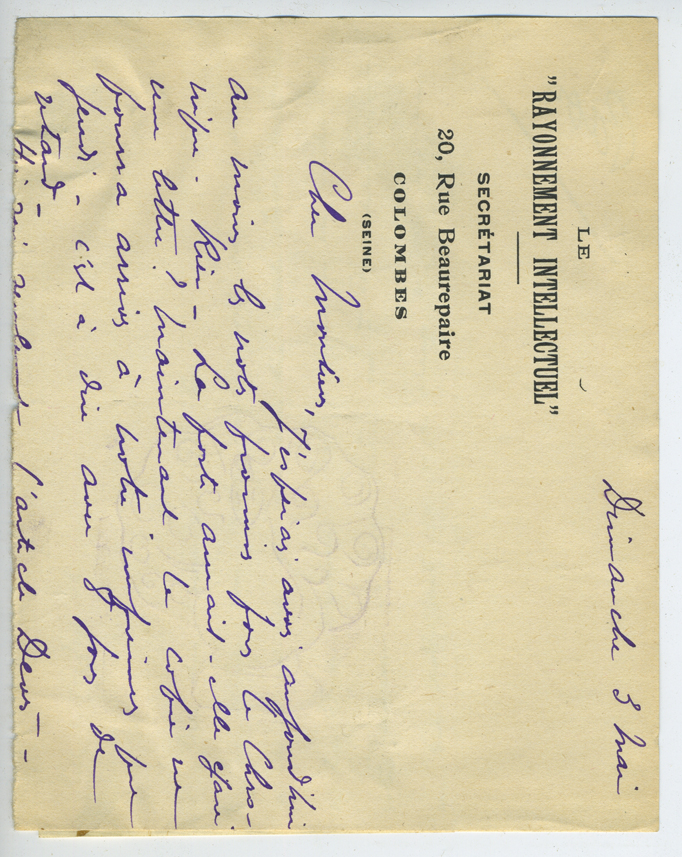 LE
"RAYONNEMENT INTELLECTUEL"
SECRÉTARIAT
20, Rue Beaurepaire
COLOMBES
(SEINE)
Dimanche 3 Mai
Cher Monsieur,
J'espérais avoir aujourd'hui
au moins les notes promises pour la Chro-
nique. Rien - La poste aurait-elle égaré
une lettre ? Maintenant la copie ne
pourra arriver à notre imprimeur que
jeudi - c'est à dire avec 8 jours de
retard -
l'article Devos -